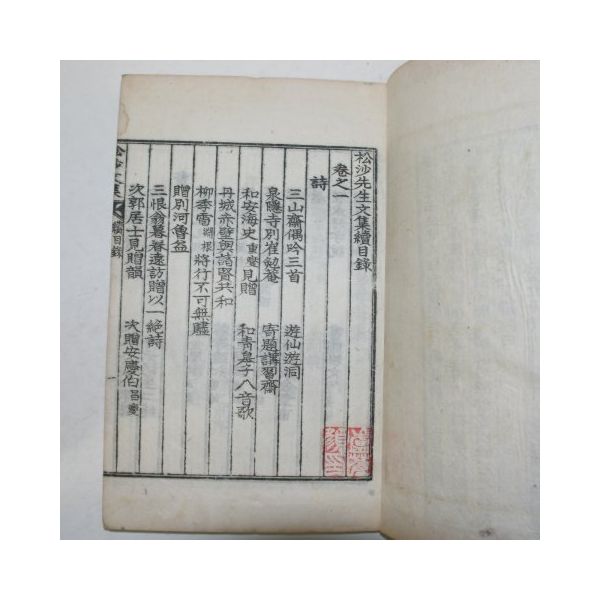 松沙先生文集續目錄
卷之一
詩
三山齋偶吟三首 遊仙遊洞
泉隱寺別崔勉菴 寄題講習齋
和安海史重燮見贈 和靑皐子八音歌
丹城赤壁與諸賢共和
柳季雷淵根將行不可無驢
贈別河魯益
三恨翁暮春遠訪贈以一絶詩
次郭居士見贈韻 次贈安慶伯昌燮
松沙文集 續目錄 一